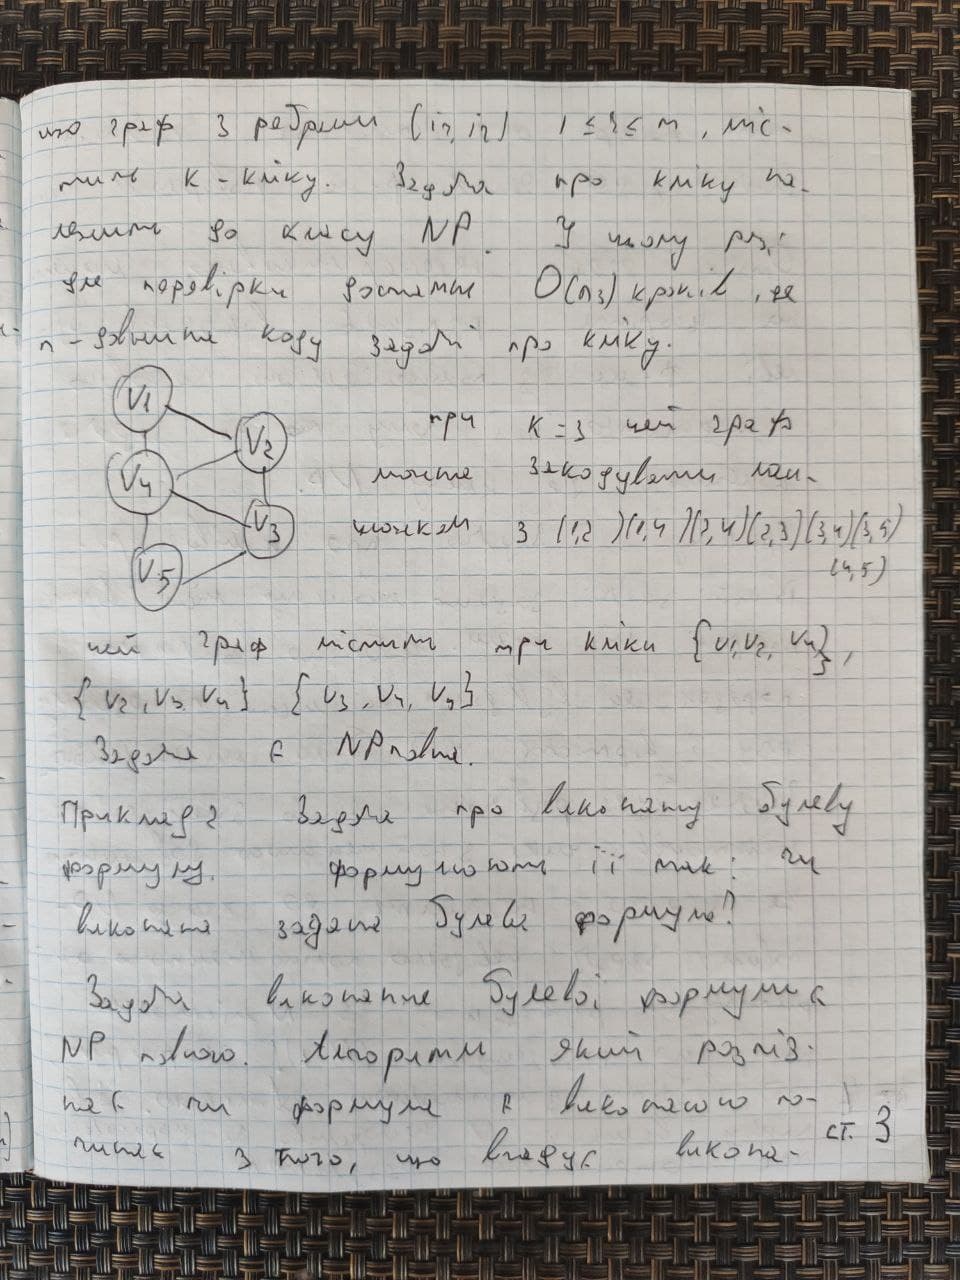 що граф з ребрами (i2, i2) 1 ≤ 2 ≤ m, міс-
тить к-кліку. Задача про кліку на-
лежить до класу NP. У цьому разі
для перевірки достатньо O(n3) кроків, де
n - довжина коду задачі про кліку.
V1
V2
при к=3 цей граф
V4
можна закодувати лан-
V3
цюжком 3 (1,2)(1,4)(2,4)(2,3)(3,4)(3,5)
(4,5)
V5
цей граф містить три кліки {V1, V2, V4},
{V2, V3, V4} {V3, V4, V5}
Задача є NP повна.
Приклад 2 Задача про виконану булеву
формулу. формулюють її так: чи
виконана задана булева формула?
Задача виконання булевої формули є
NP повною. Алгоритм який розпіз-
нає чи формула є виконаною по-
чинає з того, що вгадує викона-
ст. 3